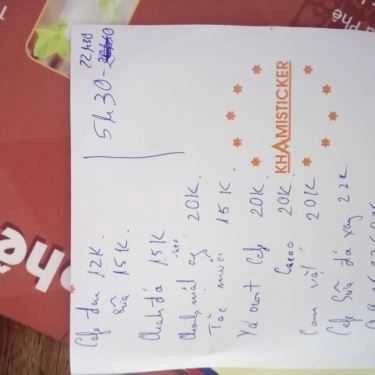 22h30
5h30 -
KHAMISTICKER
Cafe đen 12K.
Sữa 15K.
Chanh đá 15K
20K.
Tắc muối 15K.
Ya ourt Cafe 20K.
Cacao 20K.
Cam vắt 20K
Cafe Sữa đá xay 22K